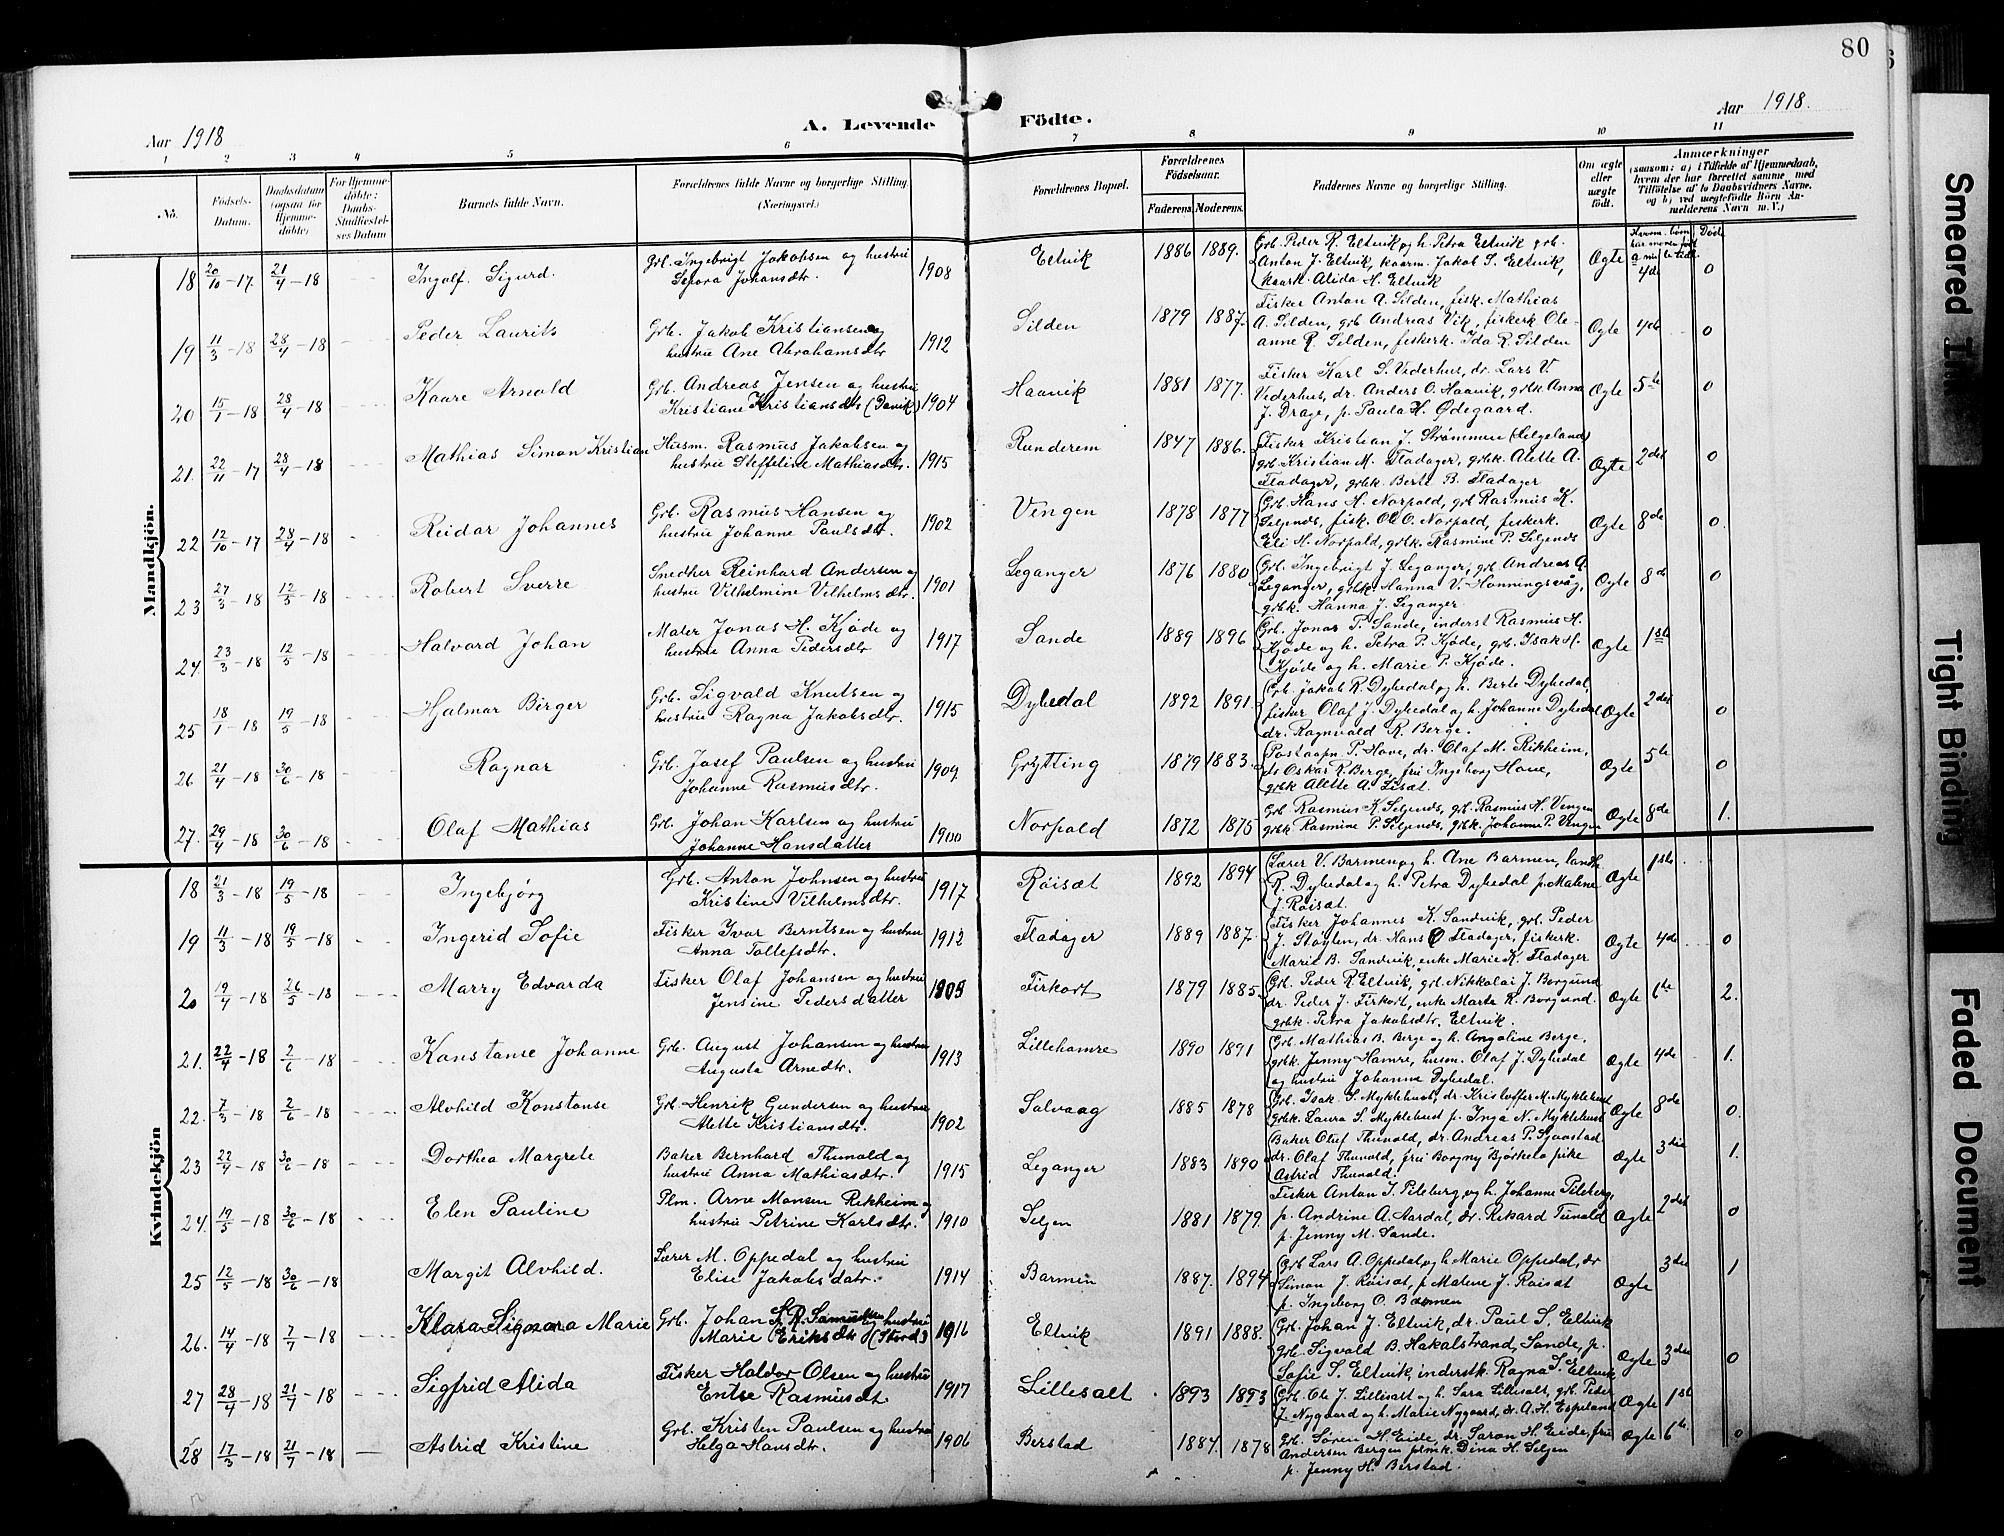 80
Aar 1918
A. Levende
Födte.
Aar 1918.
1 2 3 4 5 6 7 8 9 10 11
No.
Födsels-
Datum.
Daabsdatum
(ogsaa for
Hjemme-
döbte)
For Hjemme-
döbte:
Daabs-
Stadfæstel-
ses Datum
Barnets fulde Navn.
Forældrenes fulde Navne og borgerlige Stilling.
(Næringsvei.)
Forældrenes Bopæl.
Forældrenes
Födselsaar.
Faderens. Moderens.
Faddernes Navne og borgerlige Stilling.
Om ægte
eller
uægte
födt.
Anmærkninger
(saasom: a) i Tilfælde af Hjemmedaab,
hvem der har forrettet samme, med
Tilföielse af to Daabsvidners Navne,
og b) ved uægtefödte Börn An-
melderens Navn m. V.)
Mandkjön.
18 20/10-17 21/4-18 Ingolf Sigurd. Grb. Ingebrigt Jakobsen og hustru
Sefora Johansdtr. 1908 Eltvik 1886 1889. Grb. Peder R. Eltvik og h. Petra Eltvik grb.
Anton J. Eltvik, kaarm. Jakob S. Eltvik,
kaark Alida H. Eltvik Ægte 4de 0
19 11/3-18 28/4-18 Peder Laurits Grb. Jakob Kristiansen og
hustru Ane Abrahamsdtr 1912 Silden 1879 1887. Fisker Anton A. Silden, fisk. Mathias
A. Silden, grb Andreas Vik, fiskerk Ole-
anne R. Silden, fiskerk. Ida R. Silden Ægte 4de 0
20 15/1-18 28/4-18 Kaare Arnold Grb. Andreas Jensen og hustru
Kristiane Kristiansdtr (Davik) 1904 Haavik 1881 1877. Fisker Karl S. Viderhus, dr. Lars V.
Viderhus, dr. Anders O. Haavik, grbk Anna
J. Drage, p. Paula H. Ødegaard. Ægte 5te 0
21. 22/11-17 28/4-18 Mathias Simon Kristian Husm. Rasmus Jakobsen og
hustru Steffeline Mathiasdtr. 1915 Runderem 1847 1886. Fisker Kristian J. Strømmen (Helgeland)
grb. Kristian M. Fladager, grbk. Alette A.
Fladager, grbk Berte B. Fladager Ægte 2det 0
22 12/10-17 28/4-18 Reidar Johannes Grb. Rasmus Hansen og
hustru Johanne Paulsdtr. 1902 Vingen 1878 1877 Grb. Hans H. Norpold, grb Rasmus K.
Seljenes, fisk. Ole O. Norpold, fiskerk.
Eli H. Norpold, grbk. Rasmine P. Seljenes Ægte 8de 0.
23 27/3-18 12/5-18 Robert Sverre Snedker Reinhard Andersen og
hustru Vilhelmine Vilhelmsdtr. 1901 Leganger 1876 1880 Grb. Ingebrigt J. Leganger, grb Andreas A.
Leganger, grbk. Hanna V. Honningsvåg,
grbk. Hanna J. Leganger Ægte 8de 0
24. 23/3-18 12/5-18 Halvard Johan Maler Jonas H. Kjøde og
hustru Anna Pedersdtr 1917 Sande 1889 1896 Grb. Jonas T. Sande, inderst Rasmus H.
Kjøde og h. Petra P. Kjøde, grb. Isak H.
Kjøde og h. Marie P. Kjøde. Ægte 1ste
25 18/1-18 19/5-18 Hjalmar Birger Grb. Sigvald Knutsen og
hustru Ragna Jakobsdtr. 1915 Dybedal 1892 1891. Grb. Jakob R. Dybedal og h. Berte Dybedal,
fisker Olaf J. Dybedal og h. Johanne Dybedal
dr. Ragnvald R. Berge. Ægte 2det 0
26 21/4-18 30/6-18 Ragnar Grb. Josef Paulsen og hustru
Johanne Rasmusdtr. 1909 Grytting 1879 1883. Postaapn P. Hove, dr. Olaf M. Rikheim,
dr Oskar R. Berge, fru Ingeborg Hove,
grbk Alette A. Lisæt. Ægte 5te 0
27. 29/4-18 30/6-18 Olaf Mathias Grb. Johan Karlsen og hustru
Johanne Hansdatter 1900 Norpold 1872 1875 Grb Rasmus K. Seljenes, grb. Rasmus H. Vingen
grbk Rasmine P. Seljenes, grbk. Johanne P. Vingen Ægte 8de 1.
Kvindekjön
18 21/3-18 19/5-18 Ingebjørg Grb. Anton Johnsen og hustru
Kristine Vilhelmsdtr. 1917 Röisæt 1892 1894 Lærer V. Barmen og h. Ane Barmen, landh.
R. Dybedal og h. Petra Dybedal p. Malene
J. Röisæt. Ægte 1ste
19 11/3-18 19/5-18 Ingerid Sofie Fisker Ivar Berntsen og hustru
Anna Tollefsdtr. 1912 Fladager 1889 1887. Fisker Johannes K. Sandvik, grb. Peder
J. Støylen, dr. Hans O Fladager, fiskerk.
Marie B. Sandvik, enke Marie K. Fladager Ægte 4de 0
20 19/4-18 26/5-18 Marry Edvarda Fisker Olaf Johansen og hustru
Jensine Pedersdatter Firkort 1879 1885. Grb. Peder R. Eltvik, grb. Nikkolai J. Borgund
dr. Peder J. Firkort, enke Marte R. Borgund.
grbk. Petra Jakobsdtr. Eltvik. Ægte 6te 2.
21. 22/4-18 2/6-18 Konstanse Johanne Grb. August Johansen og hustru
Augusta Arnedtr. 1913 Lillehamre 1890 1891 Grb. Mathias B. Berge og h. Angoline Berge,
grbk. Jenny Hamre, husm. Olaf J. Dybedal
og hustru Johanne Dybedal. Ægte 4de 1.
22. 7/5-18 2/6-18 Alvhild Konstanse Grb. Henrik Gundersen og hustru
Alette Kristiansdtr. 1902 Salvaag 1885 1878 Grb. Isak S. Myklebust, dr. Kristoffer M. Myklebust
grbk. Laura S. Myklebust p. Inga N. Myklebust Ægte 8de 0.
23 22/4-18 30/6-18 Dorthea Margrete Baker Bernhard Thunold og
hustru Anna Mathiasdtr. 1915 Leganger 1883 1890 Baker Oluf Thunold, dr. Andreas P. Sjaastad
dr. Olaf Thunold, fru Borgny Bjørkelo pike
Astrid Thunold. Ægte 3die 1.
24. 19/5-18 30/6-18 Elen Pauline Plm. Arne Monsen Rikheim og
hustru Petrine Karlsdtr. 1910 Seljen 1881 1879. Fisker Anton I. Pileberg, og h. Johanne Pileberg,
p. Andrine A. Aardal, dr. Rikard Tunold
p. Jenny M. Sande. Ægte 2det 0
25 12/5-18 30/6-18 Margit Alvhild. Lærer M. Oppedal og hustru
Elise Jakobsdatr. 1914 Barmen 1887. 1894 Grb Lars A. Oppedal, og h Marie Oppedal, dr
Simon J. Röisæt, p Malene J. Röisæt
p. Ingeborg O. Barmen Ægte 3die 1
26. 14/4-18 7/7-18 Klara Signora Marie Grb. Johan S. R. Samuelsen og hustru
Marie Eriksdtr (Stord) 1916 Eltvik 1891 1888. Grb. Johan J. Eltvik, dr. Paul S. Eltvik
Grb. Sigvald B. Hakalstrand, Sande, p.
Sofie S. Eltvik, inderstk. Ragna S. Eltvik Ægte 3die 0
27 28/4-18 21/7-18 Sigfrid Alida Fisker Haldor Olsen og hustru
Entse Rasmusdt 1917 Lillesalt 1893 1893 Grb. Ole J. Lillesalt og h. Sara Lillesalt, grb. Peder
J. Nygaard og h. Marie Nygaard, dr. A. H. Espeland Ægte 1ste
28 17/3-18 21/7-18 Astrid Kristine Grb. Kristen Paulsen og hustru
Helga Hansdtr. 1906 Berstad 1884. 1878 Grb. Søren H. Eide, dr. Saron H. Eide, fru
Andersen Bergen, Dina H. Seljen
p. Jenny H. Berstad. Ægte 6te 0
Smeared Ink
Tight Binding
Faded Document